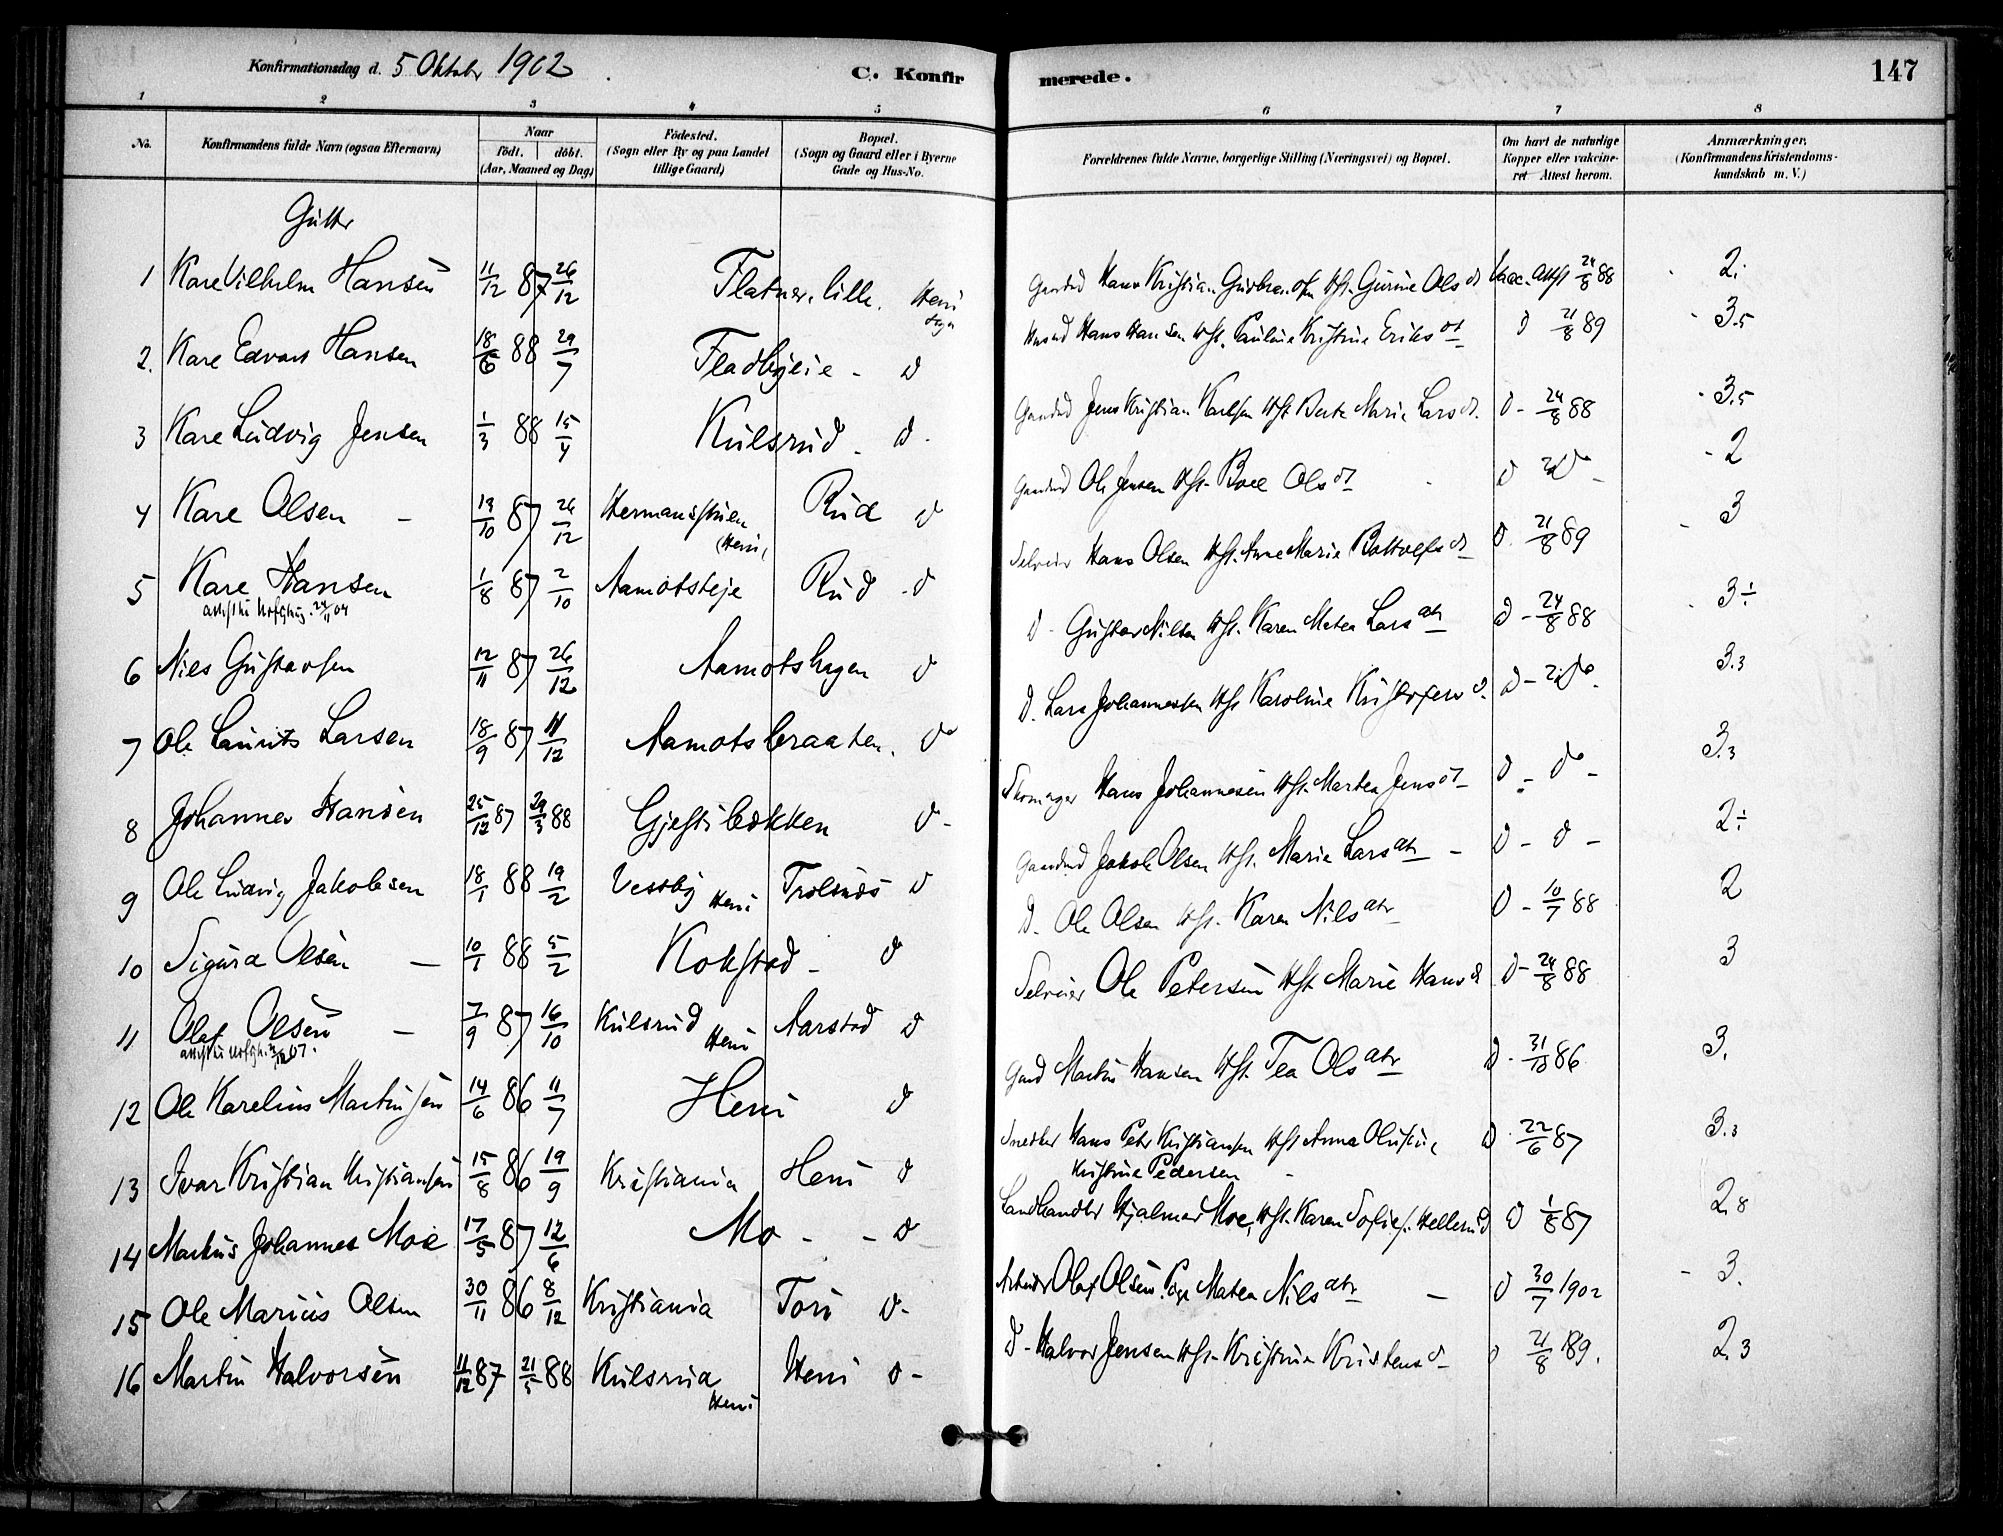 Konfirmationsdag d. 5 Oktober 1902 C. Konfirmerede. 147
1 2 3 4 5 6 7 8
No. Konfirmandens fulde Navn (ogsaa Efternavn) Naar født. døbt. (Aar, Maaned og Dag) Fødested. (Sogn eller By og paa Landet tillige Gaard) Bopæl. (Sogn og Gaard eller i Byerne Gade og Hus-No. Forældrenes fulde Navne, borgerlige Stilling (Næringsvei) og Bopæl. Om havt de naturlige Kopper eller vakcineret Attest herom. Anmærkninger. (Konfirmandens Kristendomskundskab m. V.)
Gutter
1 Kare Vilhelm Hansen 11/12 87 26/12 Flatner, lille. Heni Sogn Hans Kristian Hft. Gurine Olsdt Vacc. Attst 24/8 88 2.
2. Kare Edvart Hansen 18/6 88 29/7 Fladbyeie - d Husmd Hans Hansen Hft. Pauline Kristine Eriksdt d 21/8 89 3.5
3 Kare Ludvig Jensen 1/3 88 15/4 Kulsrud - d. Gaardmd Jens Kristian Karlsen Hft Berte Marie Larsdt. d - 24/8 88 3.5
4 Kare Olsen - 19/10 87 26/12 Hermanstuen (Heni) Rud d Gaardmd Ole Jensen Hft. Boel Olsdt d do - 2
5 Kare Hansen 1/8 87 2/10 Aamotseje Rud d Selveier Hans Olsen Hft. Anne Marie Bottolfsdt d. 21/8 89 3
24/11 04
6 Nils Gustavsen 12/11 87 26/12 Aamotshagen d d - Gustav Nilsen Hft. Karen Matea Larsdtr d - 24/8 88 3÷
7 Ole Laurits Larsen 18/9 87 11/12 Aamotsbraaten. do d. Lars Johannesen Hft Karoline Kristofersd. d - do. 3.3
8 Johannes Hansen 25/12 87 29/3 88 Gjestibækken d - Skomager Hans Johannesen Hft. Martea Jensdt d - do - 3.3
9 Ole Ludvig Jakobsen 18/1 88 19/2 Vessby Heni Trolsnæs d Gaardmd Jakob Olsen Hft. Marie Larsdtr - d - d - 2÷
10 Sigurd Olsen - 10/1 88 5/2 Kokstad - d d. Ole Olsen Hft. Karen Nilsdtr d - 10/7 88 2
11 Olaf Olsen - 7/9 87 16/10 Kulsrud Heni Aarstad d Selveier Ole Petersen Hft Marie Hansd d - 24/8 88 3
07.
12 Ole Karelius Martinsen 14/6 86 11/7 Heni d Gmd Martin Hansen Hft. Tea Olsdtr d. 31/10 86 3.
13 Ivar Kristian Kristiansen 15/8 86 19/9 Kristiania Heni d Snedker Hans Petr Kristiansen Hft Anna Olufine d. 22/6 87 3.3
Kristine Pedersen -
14 Markus Johannes Moe 17/5 87 12/6 Mo - - d Landhandler Hjalmar Moe, Hft. Karen Sofie f. Hellerud d 1/8 87 2.8
15 Ole Marius Olsen 30/11 86 8/12 Kristiania Tori d - Arbeider Olaf Olsen, Pige Matea Nilsdtr - d 30/7 1902 - 3.
16 Martin Halvorsen 11/12 87 21/5 88 Kulsrud Heni Heni d - d - Halvor Jensen Hft. Kristine Kristensd - d 21/8 89. 2.3